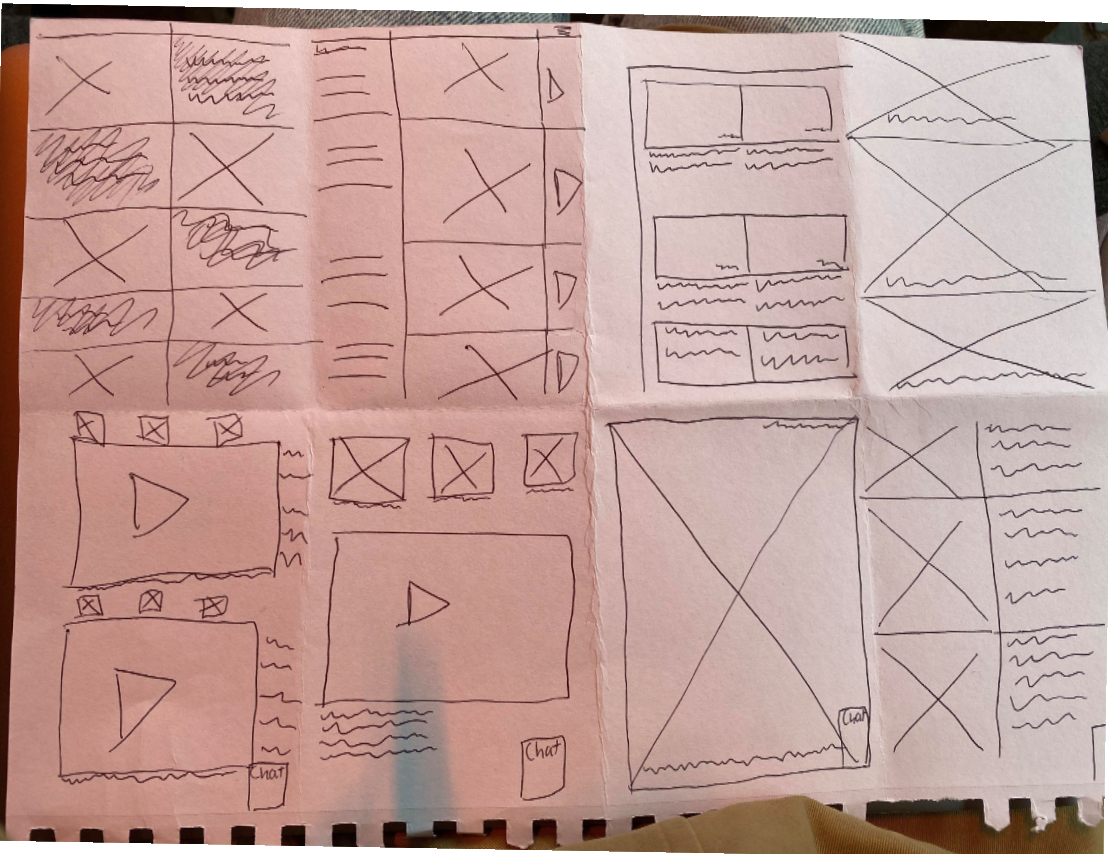 Chat
Chat
Chat